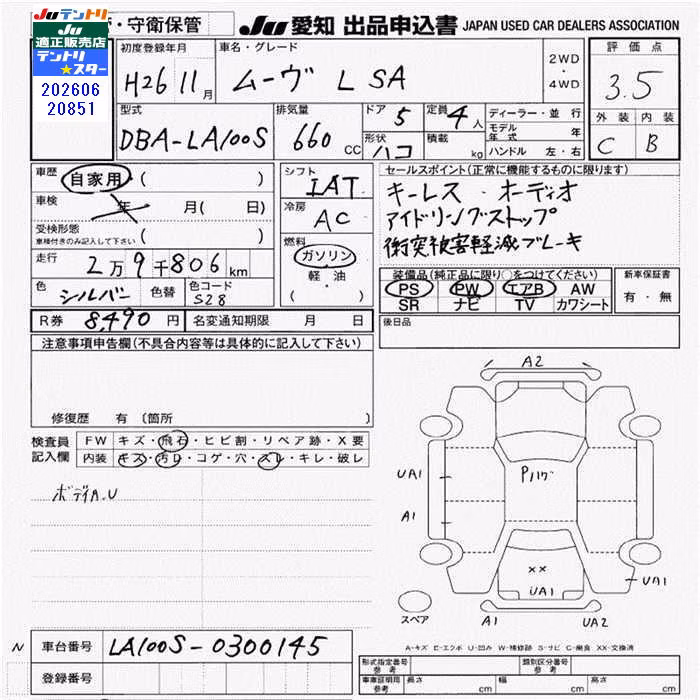 Juテントリ
Ju
適正販売店
テントリ
★スター
202606
20851
・守衛保管
Ju 愛知 出品申込書 JAPAN USED CAR DEALERS ASSOCIATION
初度登録年月
H26 11月
車名・グレード
ムーヴ L SA
2WD
・
4WD
評価点
3.5
型式
DBA-LA100S
排気量
660 CC
ドア 5
定員 4人
形状 ハコ
積載 kg
ディーラー・並行
モデル年式 年
ハンドル 左・右
外装 内装
C B
車歴 自家用 ( )
車検 年 月( 日)
受検形態
車検付きのみ記入して下さい ( )
走行 2万9千806km
色 シルバー 色替 色コード S28
シフト IAT
冷房 AC
燃料
ガソリン
軽・油
( ・ )
セールスポイント(正常に機能するものに限ります)
キーレス・オーディオ
アイドリングストップ
衝突被害軽減ブレーキ
装備品(純正品に限り○をつけてください)
PS PW エアB AW
SR ナビ TV カワシート
新車保証書
有・無
R券 8,490円 名変通知期限 月 日
後日品
注意事項申告欄(不具合内容等は具体的に記入して下さい)
修復歴 有 〔箇所
検査員
記入欄
FW キズ・飛石・ヒビ割・リペア跡・X要
内装 キズ・汚れ・コゲ・穴・スレ・キレ・破レ
ボディA.U
A2
UA1
A1
Pハゲ
××
UA1
UA1
スペア
A1
UA2
A-キズ E-エクボ U-凹み W-補修跡 S-サビ C-腐食 XX-交換済
N 車台番号 LA100S-0300145
登録番号
形式指定番号
参考
類別区分番号
参考
車庫証明用
参考
長さ cm 幅 cm 高さ cm